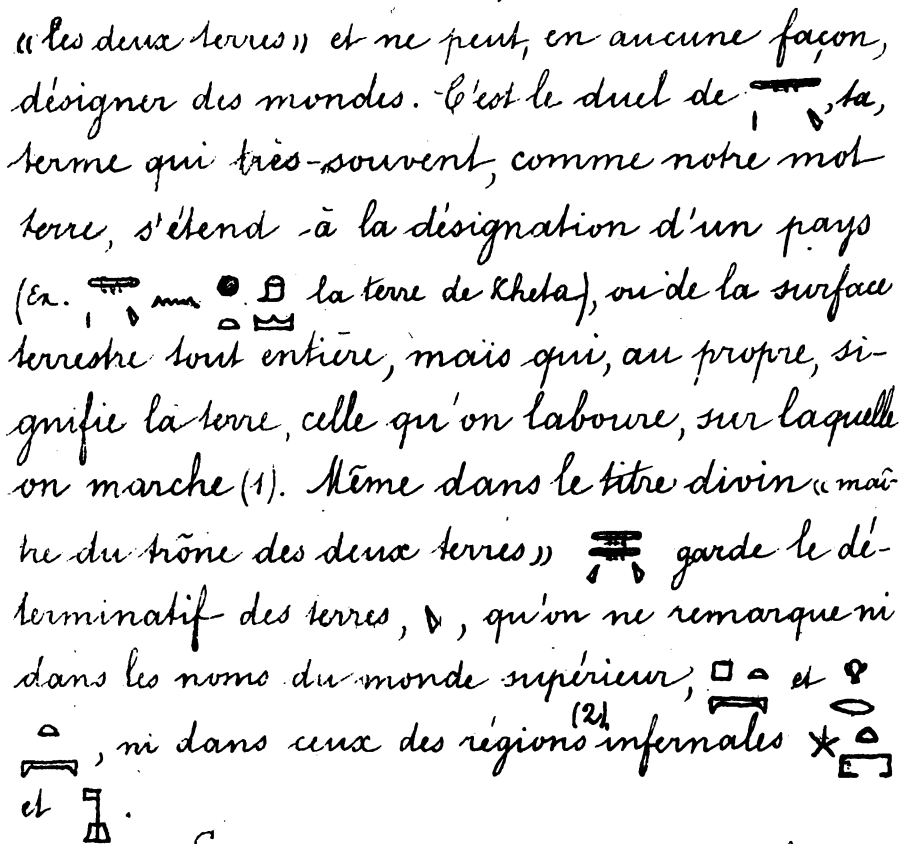 «les deux terres» et ne peut, en aucune façon,
désigner des mondes. C'est le duel de , ta,
terme qui très-souvent, comme notre mot
terre, s'étend à la désignation d'un pays
(Ex. la terre de Kheta), ou de la surface
terrestre tout entière, mais qui, au propre, si-
gnifie la terre, celle qu'on laboure, sur laquelle
on marche (1). Même dans le titre divin «maî-
tre du trône des deux terres» garde le dé-
terminatif des terres, , qu'on ne remarque ni
dans les noms du monde supérieur, et
, ni dans ceux des régions (2) infernales
et .